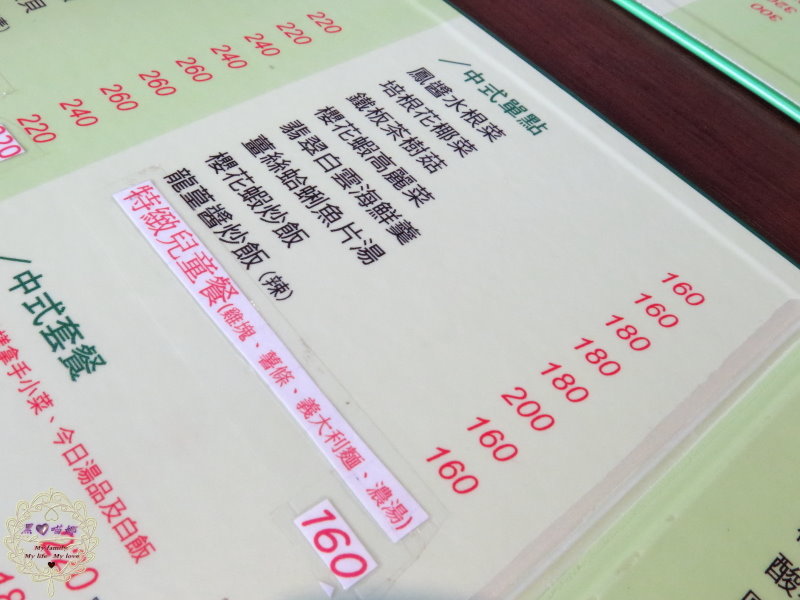 220
220
240
240
260
260
260
240
220
／中式單點
鳳醬水根菜 160
培根花椰菜 160
鐵板茶樹菇 180
櫻花蝦高麗菜 180
翡翠白雲海鮮羹 180
薑絲蛤蜊魚片湯 200
櫻花蝦炒飯 160
龍葟醬炒飯(辣) 160
特緻兒童餐(雞塊、薯條、義大利麵、濃湯) 160
／中式套餐
拿手小菜、今日湯品及白飯
300
My family
My life My love